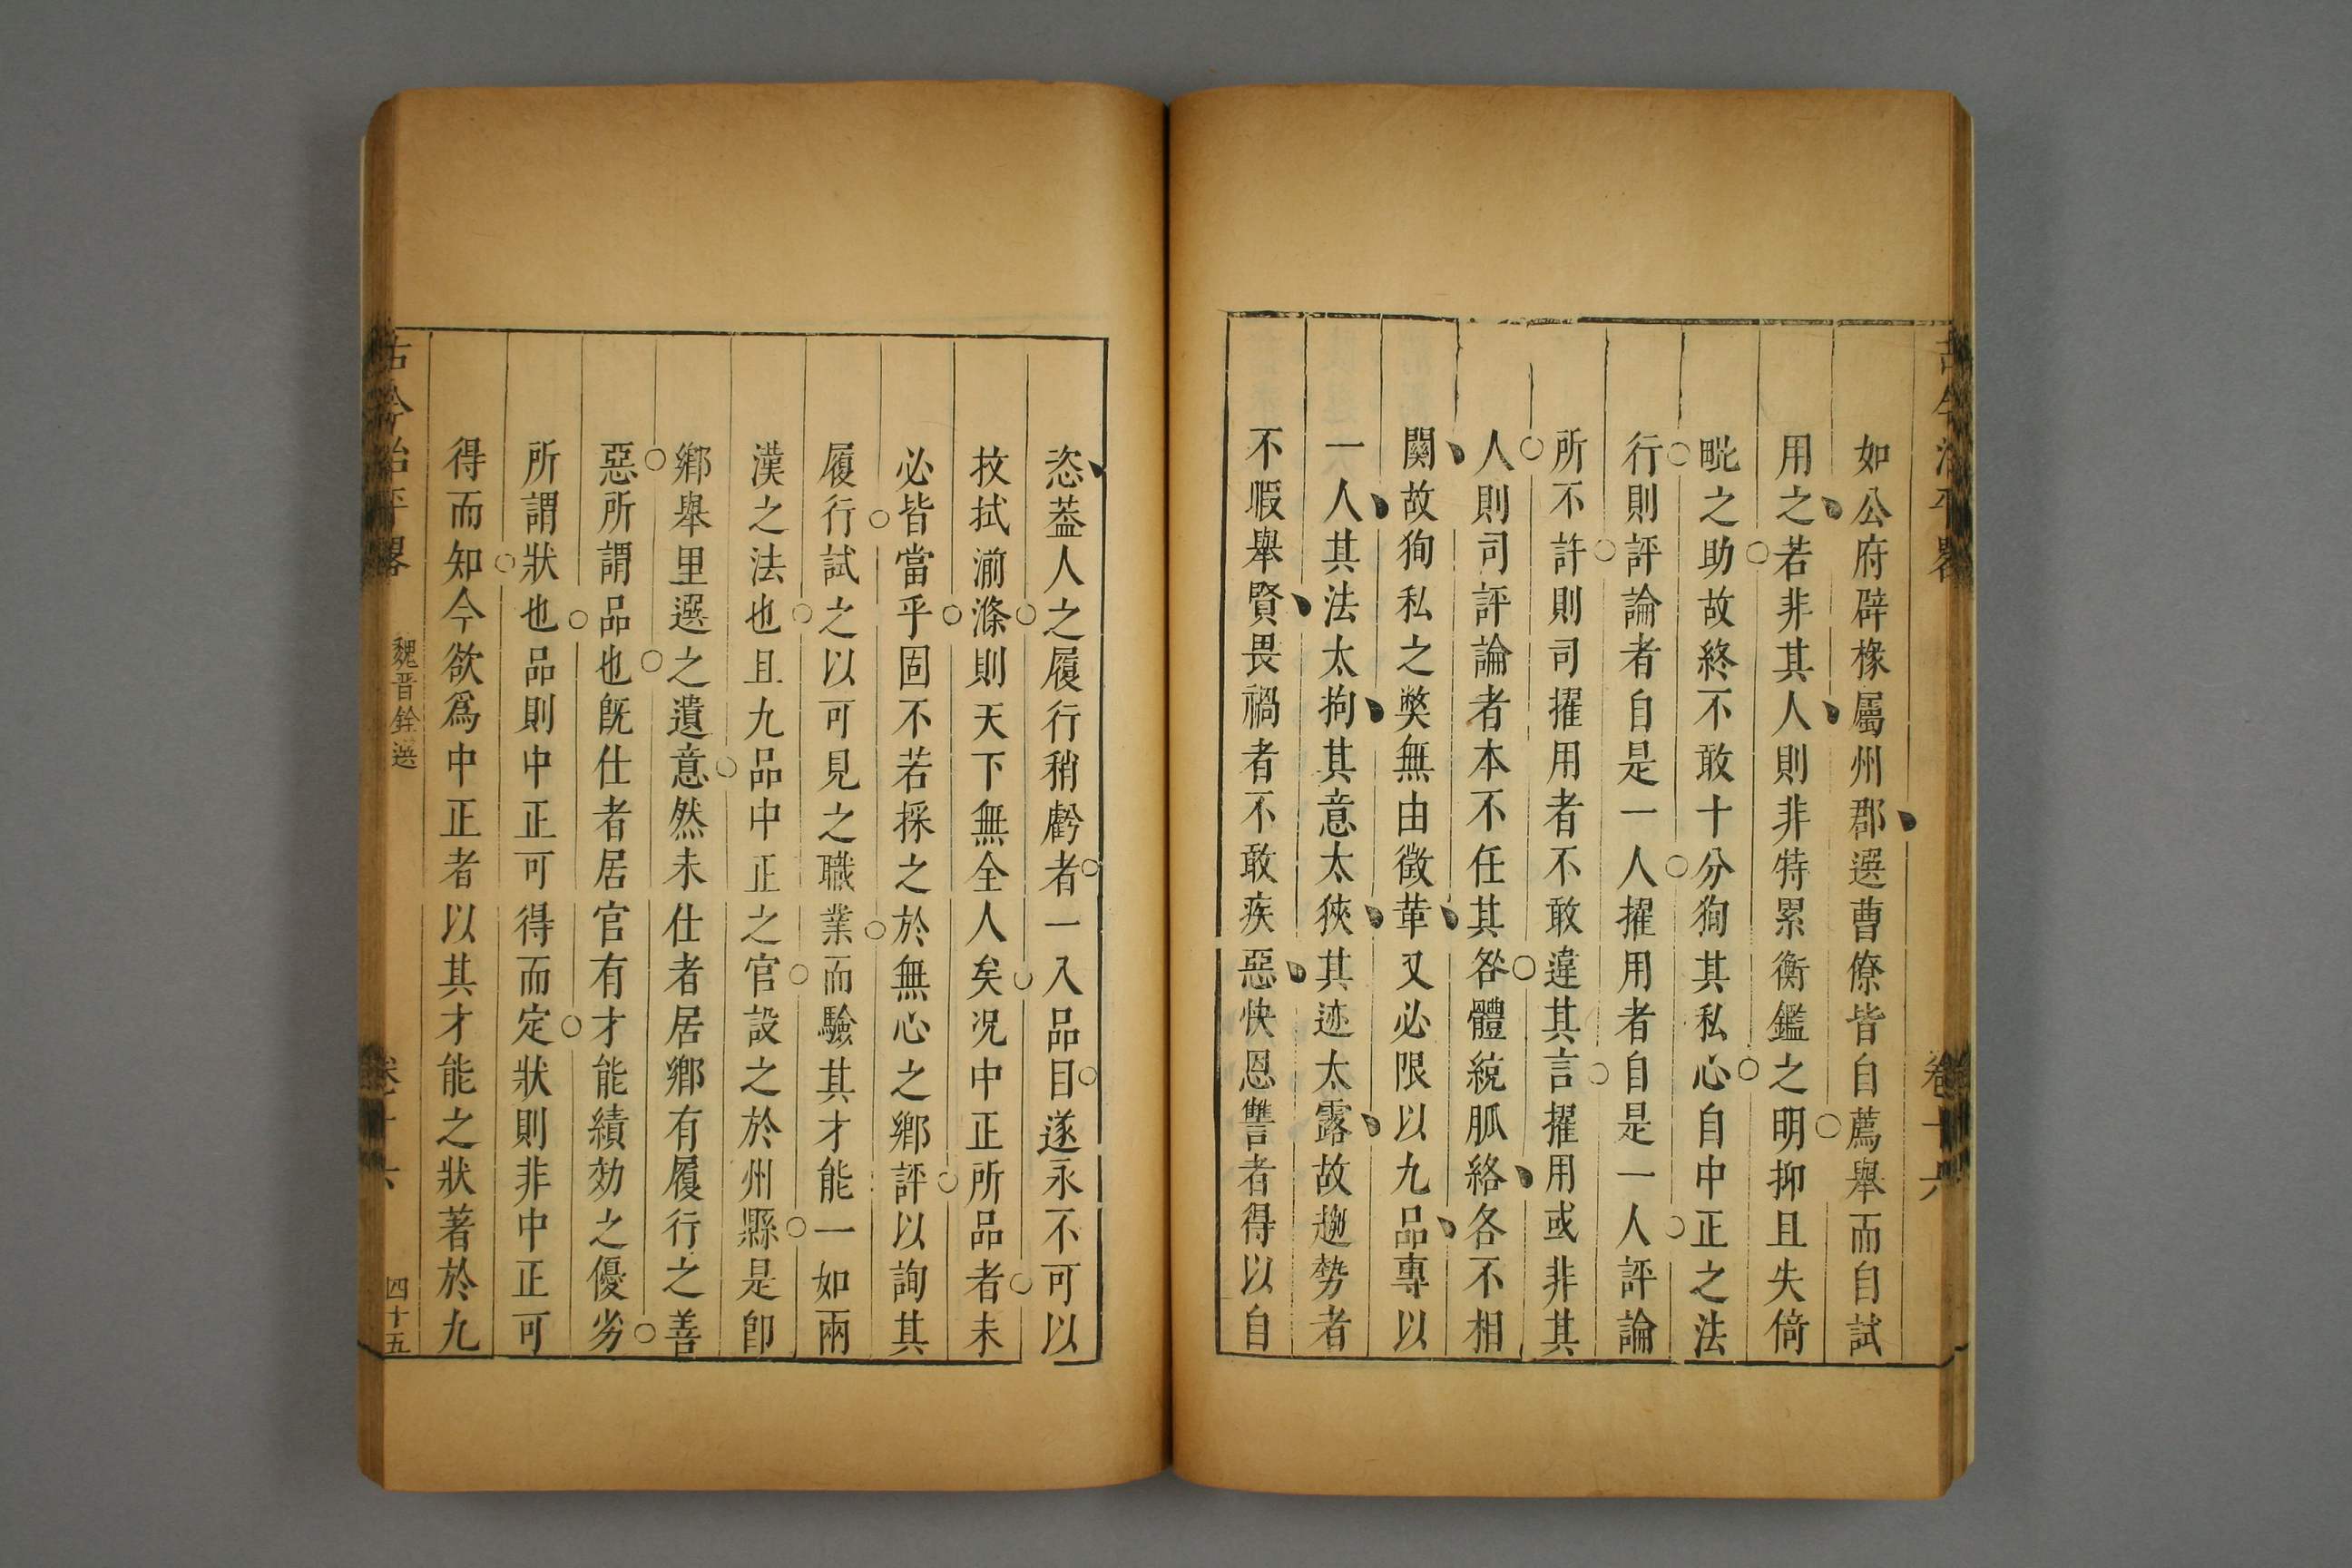 古今治平畧
卷十六
如公府辟椽屬州郡選曹僚皆自薦舉而自試
用之若非其人則非特累衡鑑之明抑且失倚
毗之助故終不敢十分狥其私心自中正之法
行則評論者自是一人擢用者自是一人評論
所不許則司擢用者不敢違其言擢用或非其
人則司評論者本不任其咎體統脈絡各不相
關故狥私之獘無由徵革又必限以九品專以
一人其法太拘其意太狹其迹太露故趨勢者
不暇舉賢畏禍者不敢疾惡快恩讐者得以自
恣葢人之履行稍虧者一入品目遂永不可以
抆拭湔滌則天下無全人矣况中正所品者未
必皆當乎固不若採之於無心之鄉評以詢其
履行試之以可見之職業而驗其才能一如兩
漢之法也且九品中正之官設之於州縣是卽
鄉舉里選之遺意然未仕者居鄉有履行之善
惡所謂品也旣仕者居官有才能績効之優劣
所謂狀也品則中正可得而定狀則非中正可
得而知今欲爲中正者以其才能之狀著於九
古今治平畧
魏晋銓選
卷十六
四十五